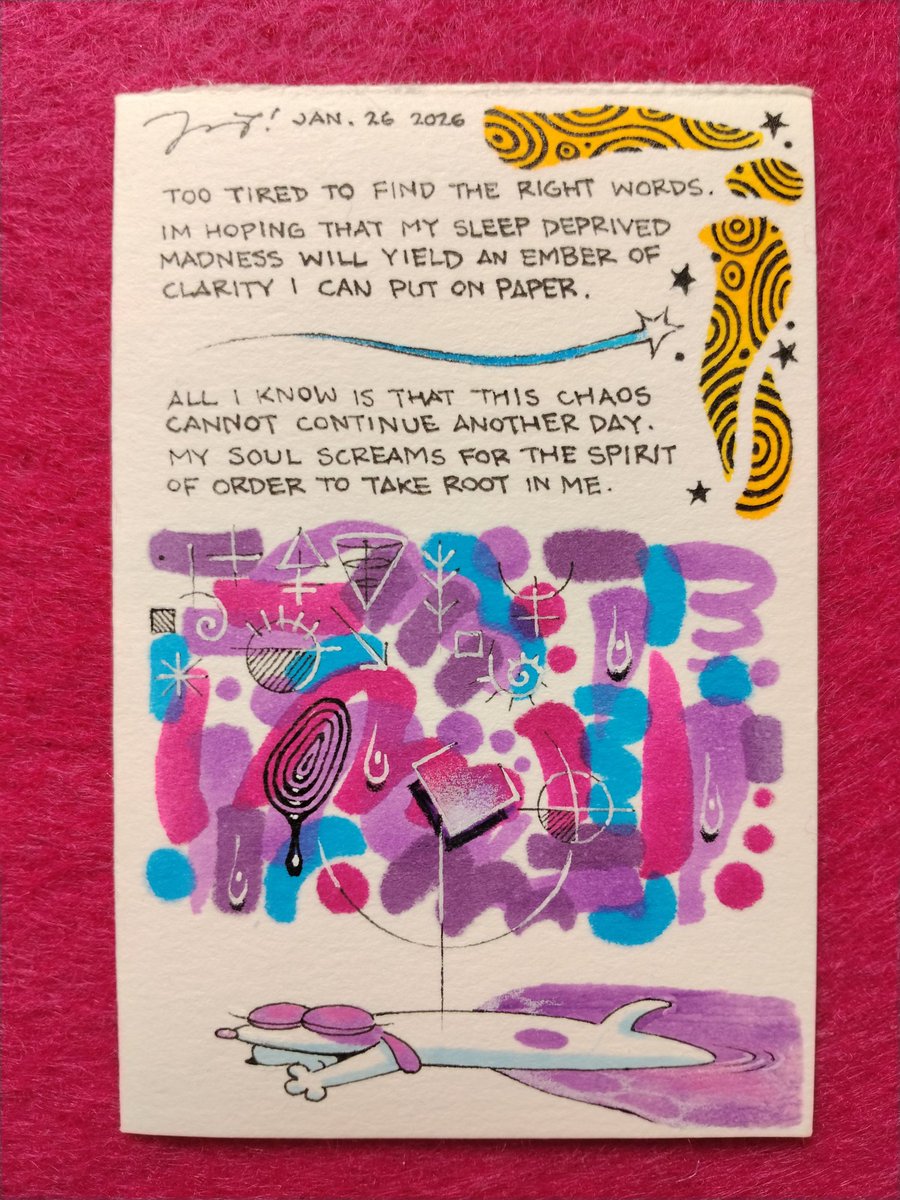 JAN. 26 2026
TOO TIRED TO FIND THE RIGHT WORDS.
IM HOPING THAT MY SLEEP DEPRIVED
MADNESS WILL YIELD AN EMBER OF
CLARITY I CAN PUT ON PAPER.
ALL I KNOW IS THAT THIS CHAOS
CANNOT CONTINUE ANOTHER DAY.
MY SOUL SCREAMS FOR THE SPIRIT
OF ORDER TO TAKE ROOT IN ME.